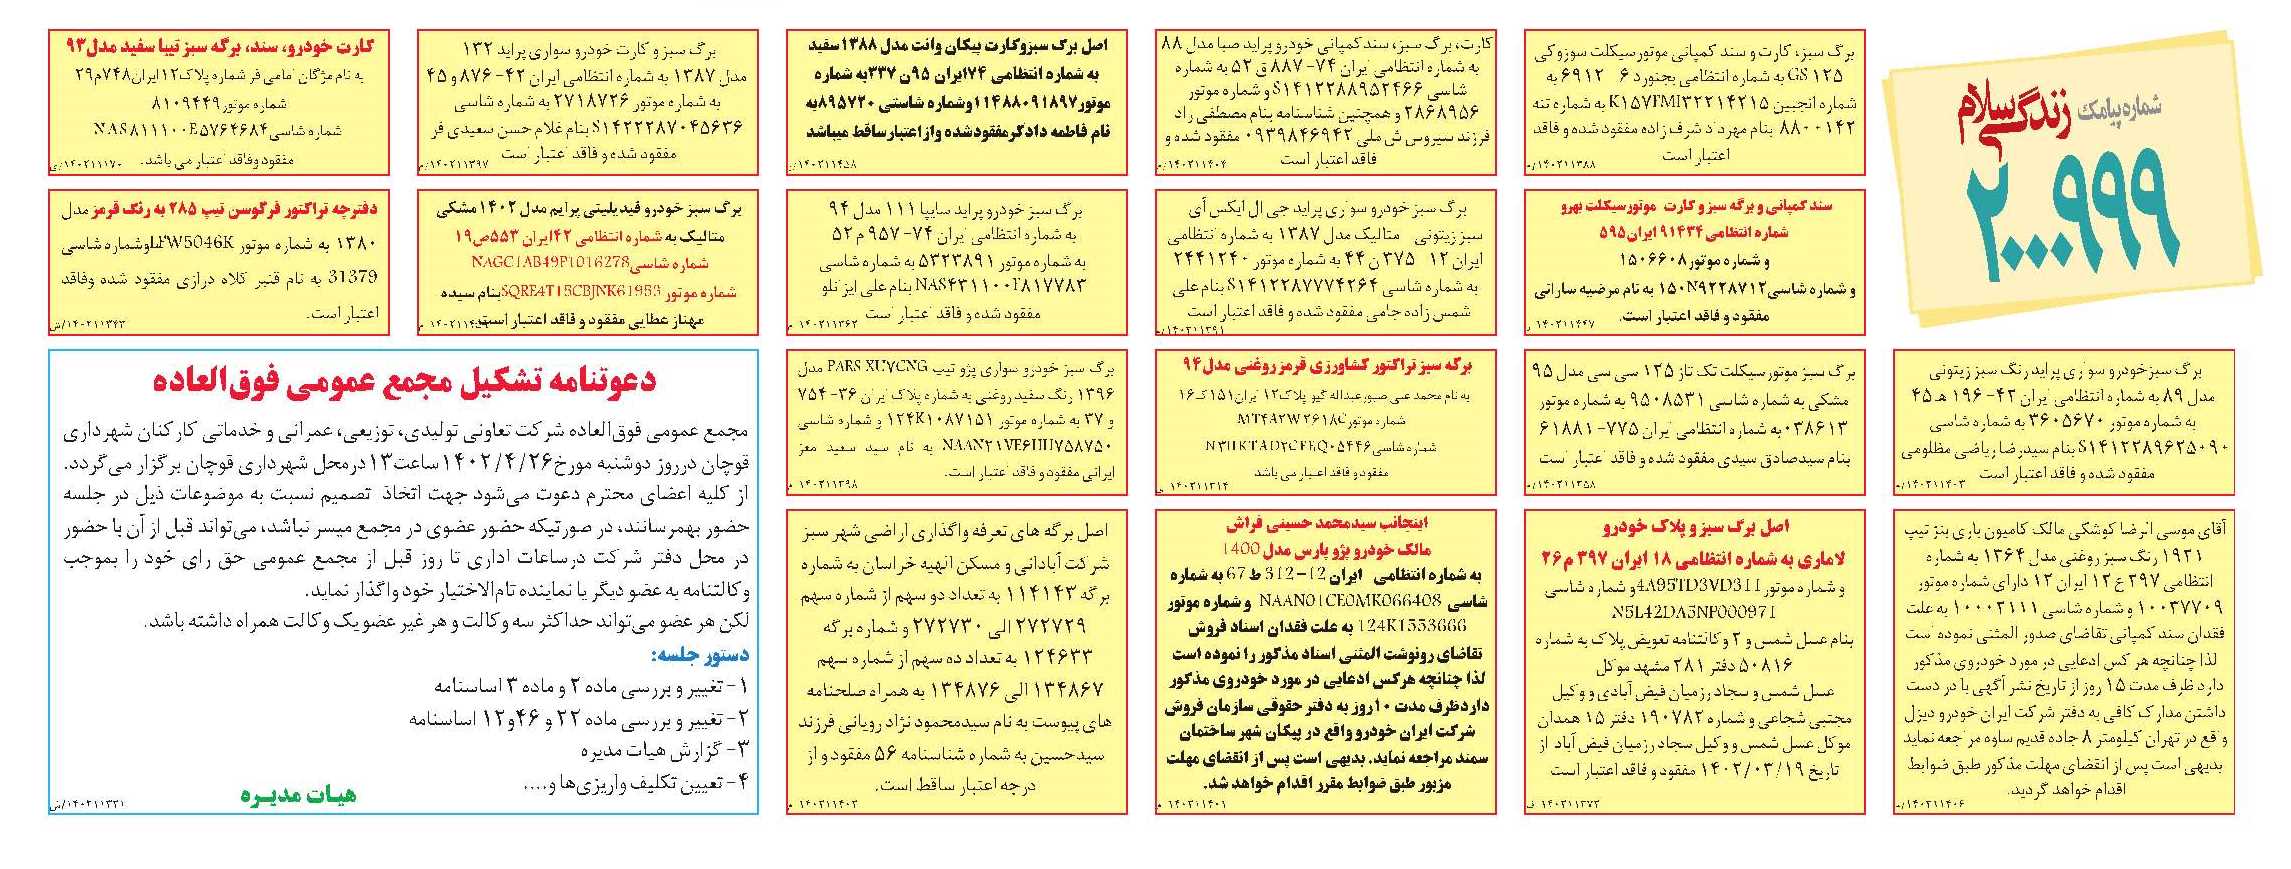 شماره پیامک زندگی سلام
۲۰۰۰۹۹۹
برگ سبز، کارت و سند کمپانی موتورسیکلت سوزوکی
GS ۱۲۵ به شماره انتظامی بجنورد ۶ ۶۹۱۲ به
شماره انجین K۱۵۷FMI۳۲۲۱۴۲۱۵ به شماره تنه
۸۸۰۰۱۴۲ بنام مهرداد شرف زاده مفقود شده و فاقد
اعتبار است
۱۴۰۲۱۱۳۸۸/م
کارت، برگ سبز، سند کمپانی خودرو پراید صبا مدل ۸۸
به شماره انتظامی ایران ۷۴- ۸۸۷ ق ۵۲ به شماره
شاسی S۱۴۱۲۲۸۸۹۵۲۴۶۶ و شماره موتور
۲۸۶۸۹۵۶ و همچنین شناسنامه بنام مصطفی راد
فرزند سیروس ش ملی ۰۹۳۹۸۴۶۹۴۲ مفقود شده و
فاقد اعتبار است
۱۴۰۲۱۱۴۰۴/م
اصل برگ سبزوکارت پیکان وانت مدل ۱۳۸۸سفید
به شماره انتظامی ۷۴ایران ۹۵ن ۳۳۷به شماره
موتور۱۱۴۸۸۰۹۱۸۹۷وشماره شاستی ۸۹۵۷۲۰به
نام فاطمه دادگرمفقودشده وازاعتبارساقط میباشد
۱۴۰۲۱۱۴۵۸/پ
برگ سبز و کارت خودرو سواری پراید ۱۳۲
مدل ۱۳۸۷ به شماره انتظامی ایران ۴۲- ۸۷۶ و ۴۵
به شماره موتور ۲۷۱۸۷۲۶ به شماره شاسی
S۱۴۲۲۲۸۷۰۴۵۶۳۶ بنام غلام حسن سعیدی فر
مفقود شده و فاقد اعتبار است
۱۴۰۲۱۱۳۹۷/م
کارت خودرو، سند، برگه سبز تیبا سفید مدل۹۳
به نام مژگان امامی فر شماره پلاک۱۲ایران۷۴۸م۲۹
شماره موتور۸۱۰۹۴۴۹
شماره شاسی NAS۸۱۱۱۰۰E۵۷۶۴۶۸۴
مفقود وفاقد اعتبار می باشد.
۱۴۰۲۱۱۱۷۰/ی
سند کمپانی و برگه سبز و کارت موتورسیکلت بهرو
شماره انتظامی۹۱۴۳۴ ایران۵۹۵
و شماره موتور۱۵۰۶۶۰۸
و شماره شاسی۱۵۰N۹۲۲۸۷۱۲ به نام مرضیه سارانی
مفقود و فاقد اعتبار است.
۱۴۰۲۱۱۴۴۷ ر
برگ سبز خودرو سواری پراید جی ال ایکس آی
سبززیتونی متالیک مدل ۱۳۸۷ به شماره انتظامی
ایران ۱۲ ۳۷۵ ن ۴۴ به شماره موتور ۲۴۴۱۲۴۰
به شماره شاسی S۱۴۱۲۲۸۷۷۷۴۲۶۴ بنام علی
شمس زاده جامی مفقود شده و فاقد اعتبار است
۱۴۰۲۱۱۳۹۱/م
برگ سبز خودرو پراید سایپا ۱۱۱ مدل ۹۴
به شماره انتظامی ایران ۷۴- ۹۵۷ م ۵۲
به شماره موتور ۵۳۲۳۸۹۱ به شماره شاسی
NAS۴۳۱۱۰۰F۸۱۷۷۸۳ بنام علی ایزانلو
مفقود شده و فاقد اعتبار است
۱۴۰۲۱۱۳۶۲ م
برگ سبز خودرو فیدیلیتی پرایم مدل ۱۴۰۲ مشکی
متالیک به شماره انتظامی ۴۲ایران ۵۵۳ص۱۹
شماره شاسی NAGC1AB49P1016278
شماره موتور SQRE4T15CBJNK61953بنام سیده
مهناز عطایی مفقود و فاقد اعتبار است.
۱۴۰۲۱۱۴۵۹ م
دفترچه تراکتور فرگوسن تیپ ۲۸۵ به رنگ قرمز مدل
۱۳۸۰ به شماره موتور LFW5046Kوشماره شاسی
31379 به نام قنبر کلاه درازی مفقود شده وفاقد
اعتبار است.
۱۴۰۲۱۱۳۴۳/ش
برگ سبزخودرو سواری پراید رنگ سبز زیتونی
مدل ۸۹ به شماره انتظامی ایران ۴۲- ۱۹۶ هـ ۴۵
به شماره موتور ۳۶۰۵۶۷۰ به شماره شاسی
S۱۴۱۲۲۸۹۶۲۵۰۹۰ بنام سیدرضا ریاضی مظلومی
مفقود شده و فاقد اعتبار است
۱۴۰۲۱۱۴۰۳/م
برگ سبز موتورسیکلت تک تاز ۱۲۵ سی سی مدل ۹۵
مشکی به شماره شاسی ۹۵۰۸۵۳۱ به شماره موتور
۰۳۸۶۱۳ به شماره انتظامی ایران ۷۷۵- ۶۱۸۸۱
بنام سیدصادق سیدی مفقود شده و فاقد اعتبار است
۱۴۰۲۱۱۳۵۸/م
برگه سبز تراکتور کشاورزی قرمز روغنی مدل۹۴
به نام محمد علی صبورعبداله گیو پلاک۱۲ ایران۱۵۱ک۱۶
شماره موتور MT۴A۲W۲۶۱۸C
شماره شاسی
مفقود و فاقد اعتبار می باشد
۱۴۰۲۱۱۳۱۴ ی
برگ سبز خودرو سواری پژو تیپ PARS XU۷CNG مدل
۱۳۹۶ رنگ سفید روغنی به شماره پلاک ایران ۳۶- ۷۵۴
و ۳۷ به شماره موتور ۱۲۴K۱۰۸۷۱۵۱ و شماره شاسی
NAAN۲۱VE۶HH۷۵۸۷۵۰ به نام سید سعید معز
ایرانی مفقود و فاقد اعتبار است.
۱۴۰۲۱۱۳۹۸ م
دعوتنامه تشکیل مجمع عمومی فوق‌العاده
مجمع عمومی فوق‌العاده شرکت تعاونی تولیدی، توزیعی، عمرانی و خدماتی کارکنان شهرداری
قوچان درروز دوشنبه مورخ۱۴۰۲/۴/۲۶ ساعت۱۳ درمحل شهرداری قوچان برگزار می‌گردد.
از کلیه اعضای محترم دعوت می‌شود جهت اتخاذ تصمیم نسبت به موضوعات ذیل در جلسه
حضور بهمرسانند، در صورتیکه حضور عضوی در مجمع میسر نباشد، می‌تواند قبل از آن با حضور
در محل دفتر شرکت درساعات اداری تا روز قبل از مجمع عمومی حق رای خود را بموجب
وکالتنامه به عضو دیگر یا نماینده تام‌الاختیار خود واگذار نماید.
لکن هر عضو می‌تواند حداکثر سه وکالت و هر غیر عضو یک وکالت همراه داشته باشد.
دستور جلسه:
۱- تغییر و بررسی ماده ۲ و ماده ۳ اساسنامه
۲- تغییر و بررسی ماده ۲۲ و ۴۶و۱۲ اساسنامه
۳- گزارش هیات مدیره
۴- تعیین تکلیف واریزی‌ها و....
هیات مدیـره
۱۴۰۲۱۱۳۳۱/ش
آقای موسی الرضا کوشکی مالک کامیون باری بنز تیپ
۱۹۲۱ رنگ سبز روغنی مدل ۱۳۶۴ به شماره
انتظامی ۳۹۷ ع ۱۲ ایران ۱۲ دارای شماره موتور
۱۰۰۳۷۷۰۹ و شماره شاسی ۱۰۰۰۲۱۱۱ به علت
فقدان سند کمپانی تقاضای صدور المثنی نموده است
لذا چنانچه هر کس ادعایی در مورد خودروی مذکور
دارد ظرف مدت ۱۵ روز از تاریخ نشر آگهی با در دست
داشتن مدارک کافی به دفتر شرکت ایران خودرو دیزل
واقع در تهران کیلومتر ۸ جاده قدیم ساوه مراجعه نماید
بدیهی است پس از انقضای مهلت مذکور طبق ضوابط
اقدام خواهد گردید.
۱۴۰۲۱۱۴۰۶/م
اصل برگ سبز و پلاک خودرو
لاماری به شماره انتظامی ۱۸ ایران ۳۹۷ م۲۶
و شماره موتور 4A95TD3VD311و شماره شاسی
N5L42DA5NP000971
بنام عسل شمس و ۲ وکالتنامه تعویض پلاک به شماره
۵۰۸۱۶ دفتر ۲۸۱ مشهد موکل
عسل شمس و سجاد رزمیان فیض آبادی و وکیل
مجتبی شجاعی و شماره ۱۹۰۷۸۲ دفتر ۱۵ همدان
موکل عسل شمس و وکیل سجاد رزمیان فیض آباد از
تاریخ ۱۴۰۲/۰۳/۱۹ مفقود و فاقد اعتبار است
۱۴۰۲۱۱۳۷۳ ف
اینجانب سیدمحمد حسینی فراش
مالک خودرو پژو پارس مدل 1400
به شماره انتظامی ایران 12-312 ط 67 به شماره
شاسی NAAN01CE0MK066408 و شماره موتور
124K1553666 به علت فقدان اسناد فروش
تقاضای رونوشت المثنی اسناد مذکور را نموده است
لذا چنانچه هرکس ادعایی در مورد خودروی مذکور
داردظرف مدت ۱۰روز به دفتر حقوقی سازمان فروش
شرکت ایران خودرو واقع در پیکان شهر ساختمان
سمند مراجعه نماید. بدیهی است پس از انقضای مهلت
مزبور طبق ضوابط مقرر اقدام خواهد شد.
۱۴۰۲۱۱۴۰۱ م
اصل برگه های تعرفه واگذاری اراضی شهر سبز
شرکت آبادانی و مسکن الهیه خراسان به شماره
برگه ۱۱۴۱۴۳ به تعداد دو سهم از شماره سهم
۲۷۲۷۲۹ الی ۲۷۲۷۳۰ و شماره برگه
۱۲۴۶۳۳ به تعداد ده سهم از شماره سهم
۱۳۴۸۶۷ الی ۱۳۴۸۷۶ به همراه صلحنامه
های پیوست به نام سیدمحمود نژاد رویانی فرزند
سیدحسین به شماره شناسنامه ۵۶ مفقود و از
درجه اعتبار ساقط است.
۱۴۰۲۱۱۴۰۳ م